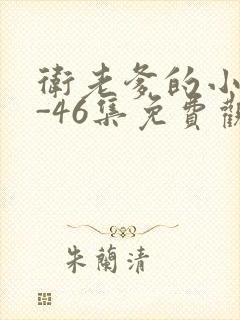 衛老爹的小
-46集免費觀
朱蘭清